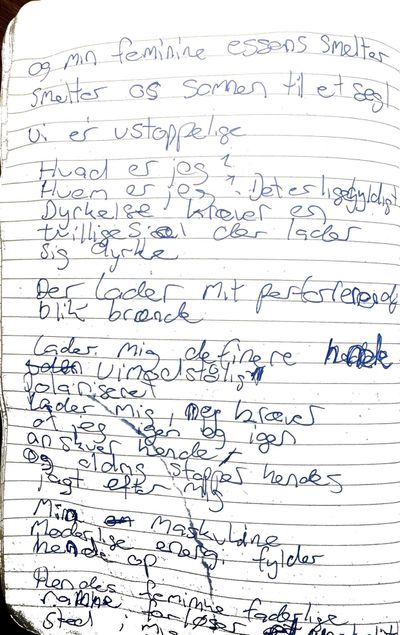 og min feminine essens smelter
smelter os sammen til et segl
vi er ustoppelige
Hvad er jeg?
Hvem er jeg? Det er ligegyldigt
Dyrkelse kræver en
trillige sjæl der lader
sig dyrke
Der lader mit perforerende
blik brænde
Lader mig definere hende
uimodståelig
polariseret
Lader mig, kræver
at jeg igen og igen
ansker hende
og aldrig stopper hendes
jagt efter mig
Min maskuline
Moderlige energi fylder
hende op
Hendes feminine faderlige
ramme forløser
sted i mig